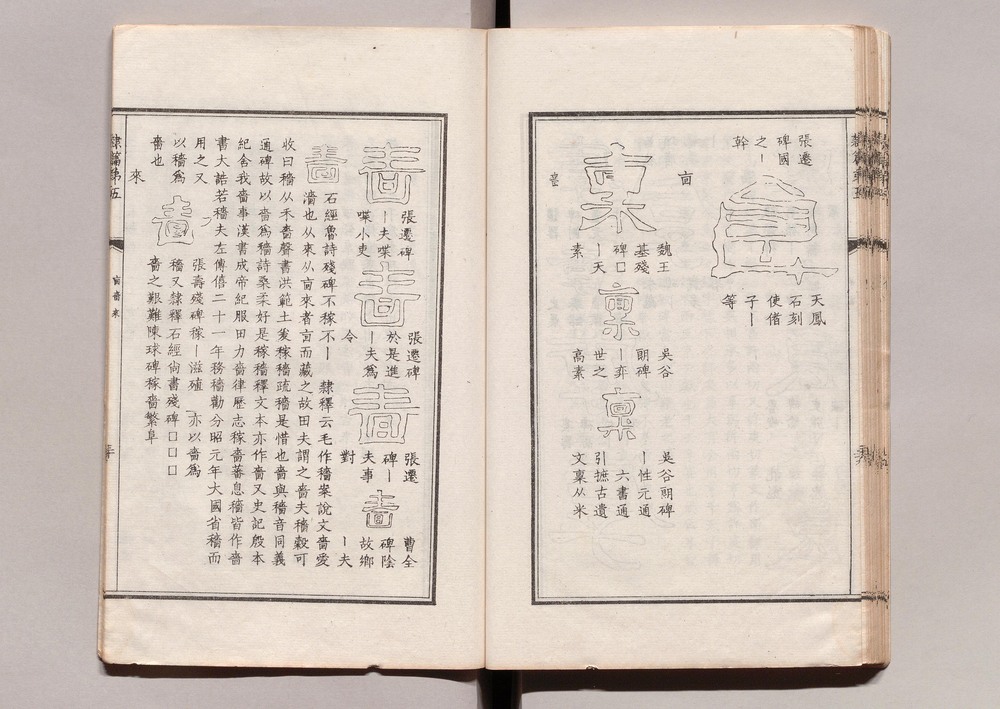 張遷
碑國
之丨
幹
天鳳
石刻
使偖
子丨
等
㐭
稟
魏王
基殘
碑□
丨天
素
稟
吳谷
朗碑
丨弈
世之
高素
稟
吳谷朗碑
丨性元通
六書通
引摭古遺
文稟从米
嗇
嗇
張遷碑
丨夫喋
喋小吏
嗇
張遷碑
於是進
丨夫爲
令
嗇
張遷
碑丨
夫事
對
嗇
曹全
碑陰
故鄉
丨夫
嗇
石經魯詩殘碑不稼不丨 隸釋云毛作穡案說文嗇愛
濇也从來从㐭來者㐭而藏之故田夫謂之嗇夫穡穀可
收曰穡从禾嗇聲書洪範土爰稼穡疏穡是惜也嗇與穡音同義
通碑故以嗇爲穡詩桑柔好是稼穡釋文本亦作嗇又史記殷本
紀舍我嗇事漢書成帝紀服田力嗇律歷志稼嗇蕃息穡皆作嗇
書大誥若穡夫左傳僖二十一年務穡勸分昭元年大國省穡而
用之又
以穡爲
嗇也
嗇
張壽殘碑稼丨滋殖 亦以嗇爲
穡又隸釋石經尚書殘碑□□□
嗇之艱難陳球碑稼嗇繁阜
來
隸篇第五
㐭嗇來